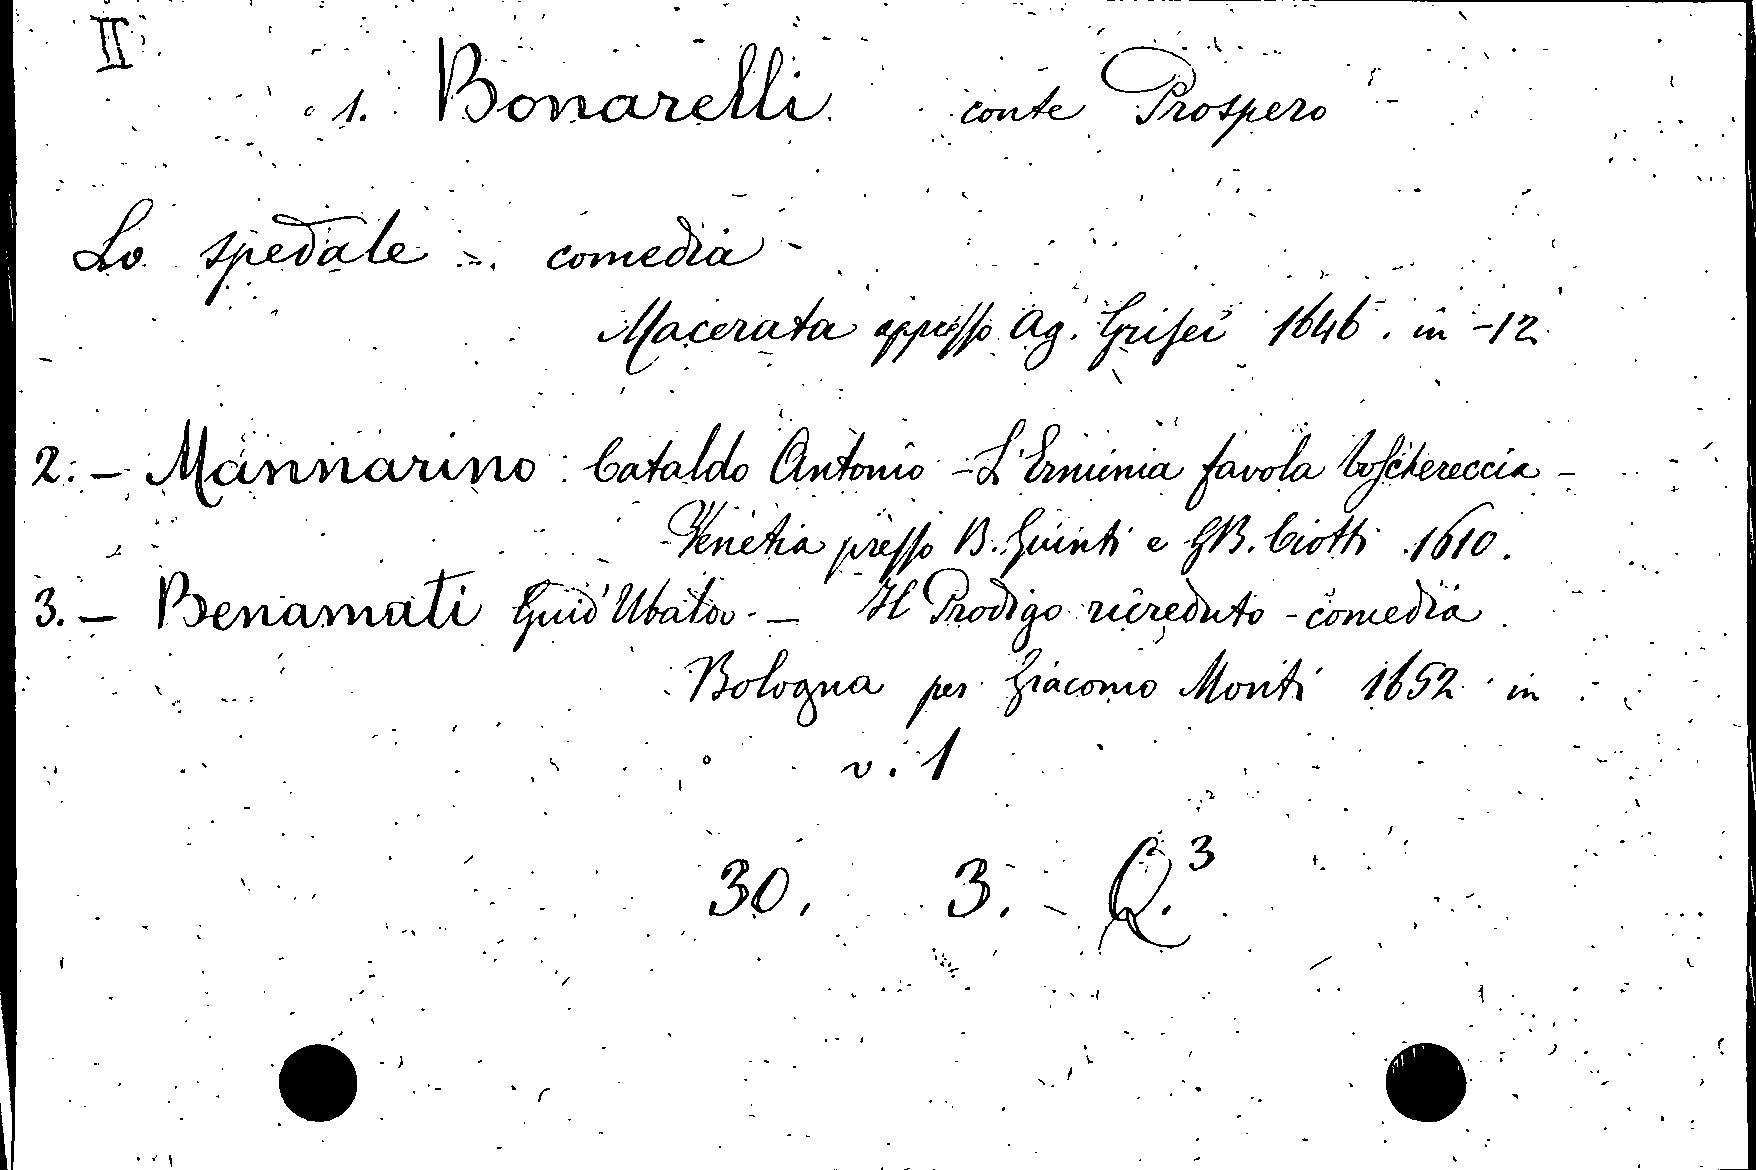 II
1. Bonarelli conte Prospero
Lo spedale - comedia -
Macerata appresso Ag. Grisei 1646. in -12
2. - Mannarino Cataldo Antonio - L'Erminia favola boschereccia -
Venetia presso B. Giunti e GB. Ciotti 1610.
3. - Benamati Guid'Ubaldo - Il Prodigo ricreduto - comedia
Bologna per Giacomo Monti 1652 in
v. 1
30. 3. - Q.3